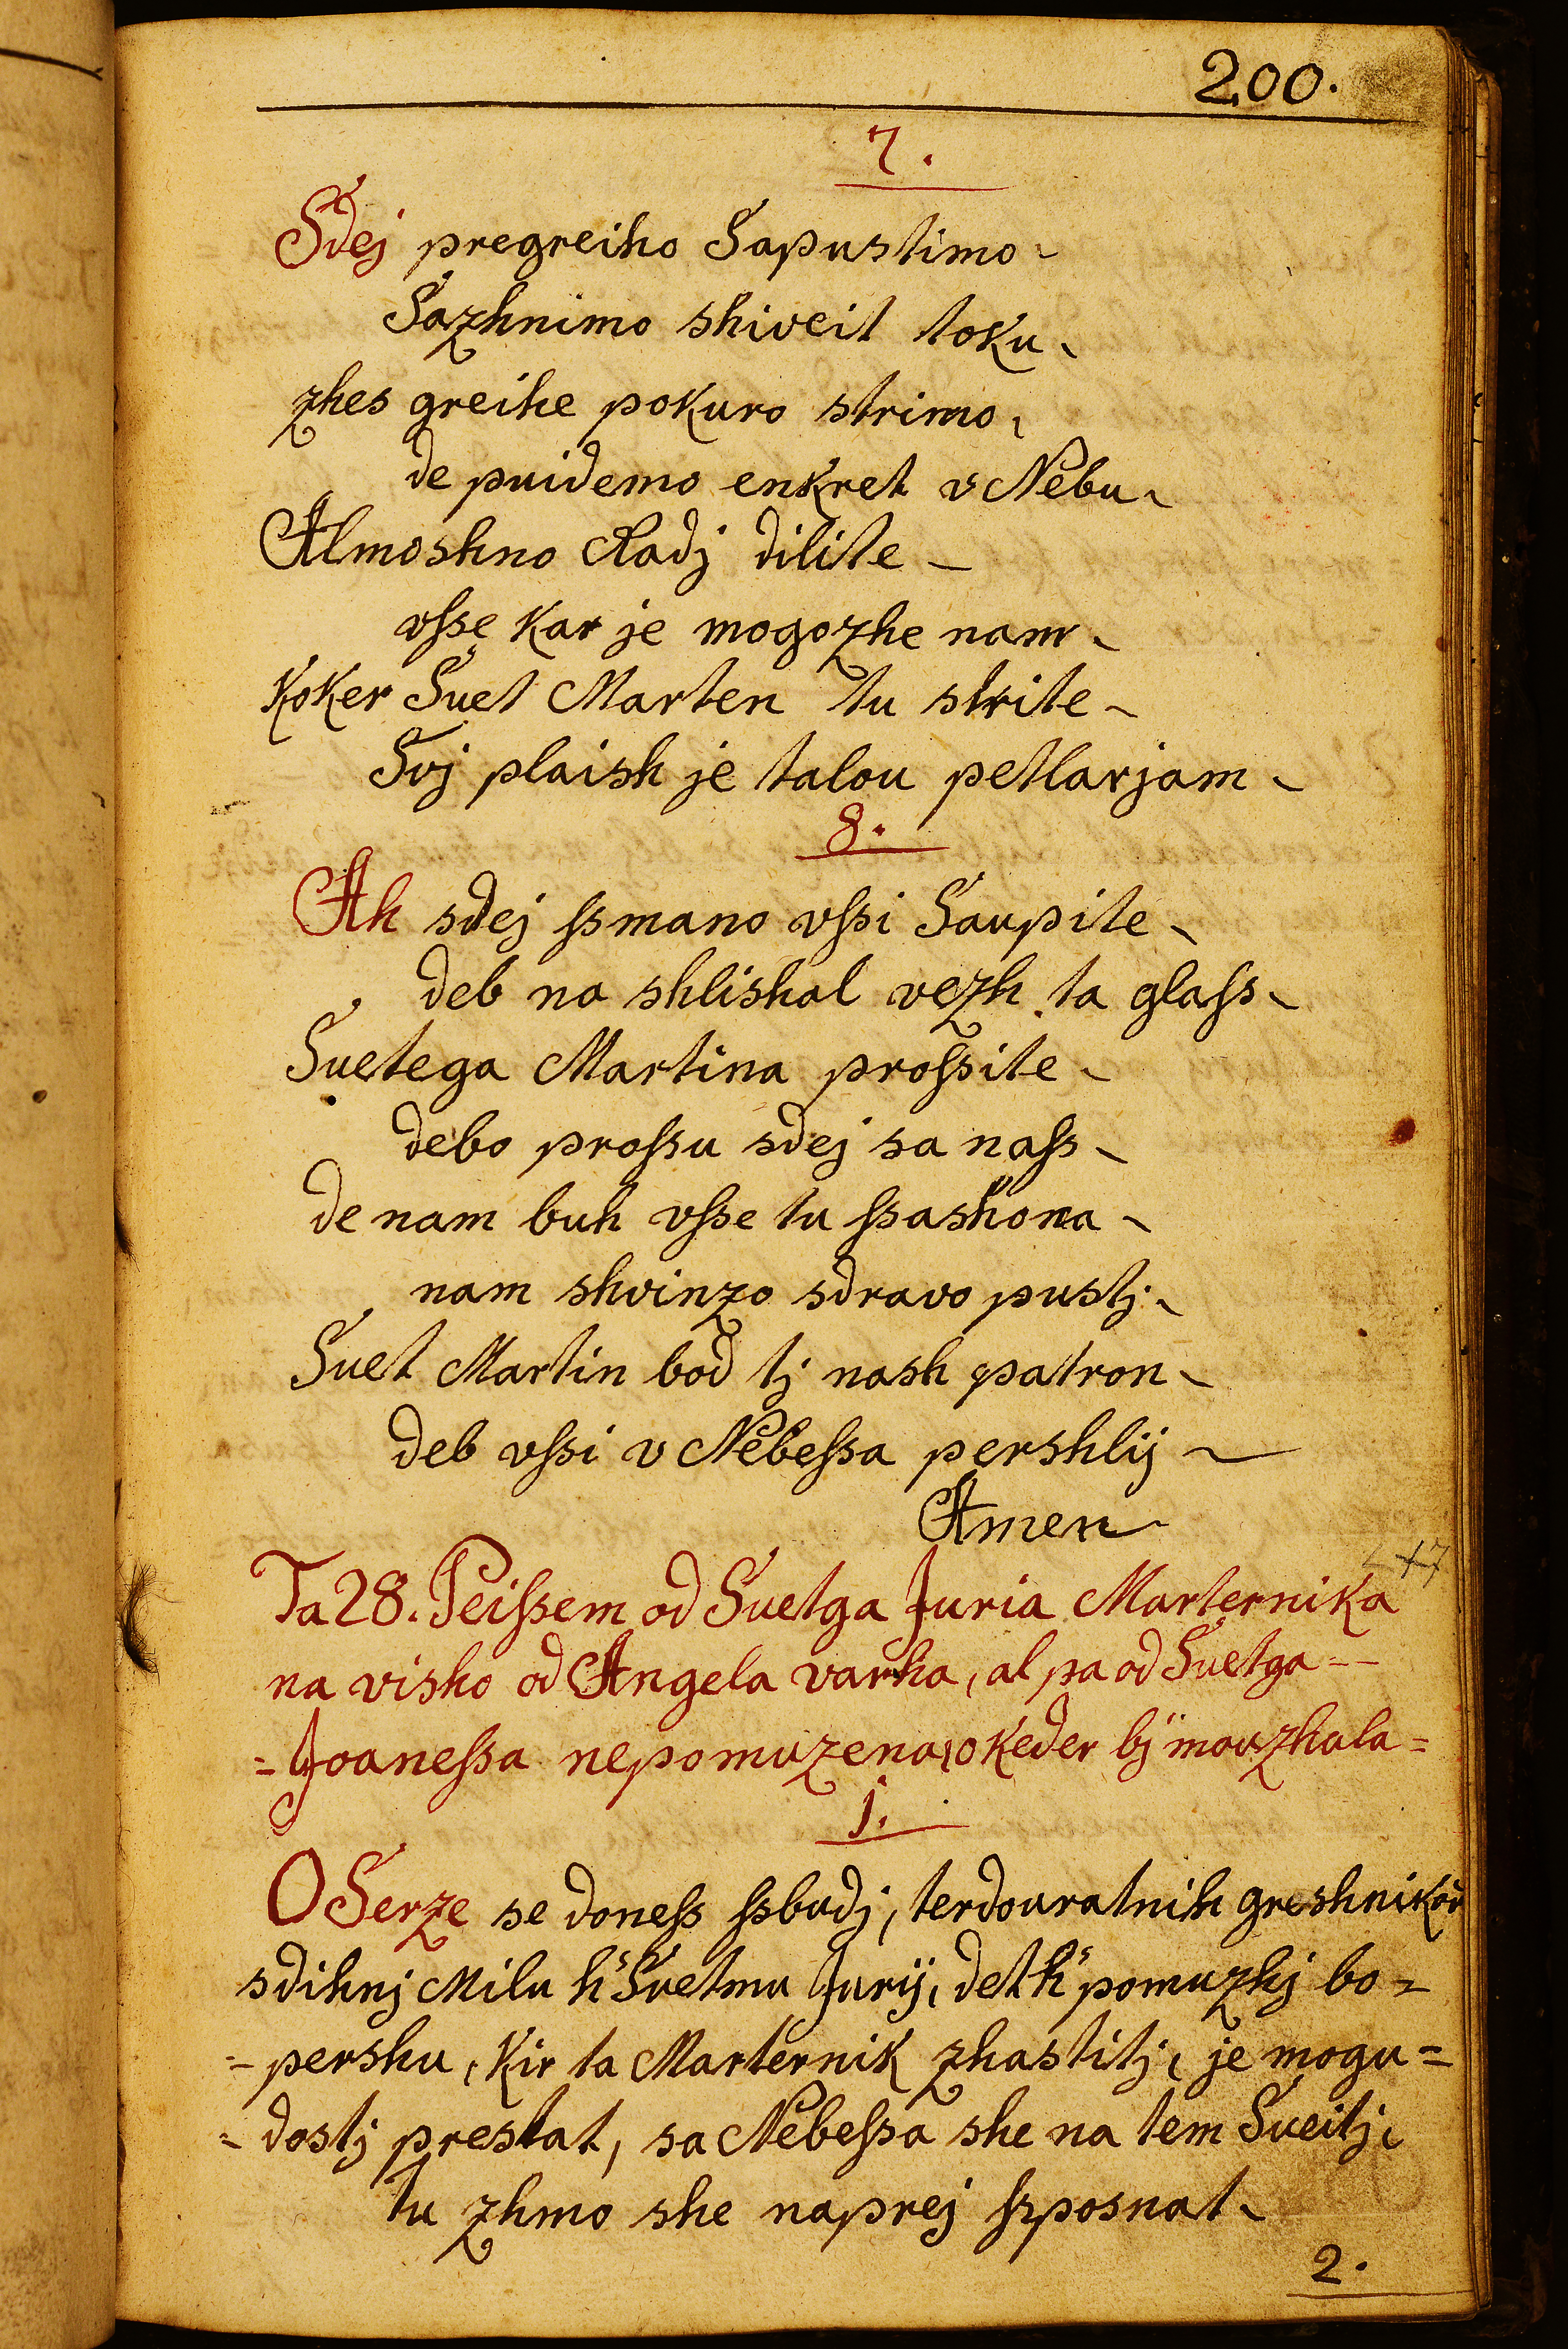 200.
7.
Sdej pregreiho Sapustimo
Sazhnimo shiveit toku
zhes greihe pokuro strimo
de puidemo enkret v Nebu
Almoshno Radj dilite
vſse kar je mogozhe nam
Koker Suet Marten tu strite
Svj plaish je talou petlarjam
8.
Ah sdej ſsmano vſsi Saupite
deb na shlishal vezh ta glaſs
Suetega Martina proſsite
debo proſsu sdej sa naſs
de nam buh vſse tu ſsashona
nam shvinzo sdravo pustj
Suet Martin bod tj nash patron
deb vſsi v Nebeſsa pershlij
Amen
Ta 28. Peiſsem od Suetga Juria Marternika
na visho od Angela varha, al pa od Suetga
= Joaneſsa nepomuzena, o keder bj mouzhala =
j.
O Serze se doneſs ſsbudj, terdouratnih greshnikou
sdihnj Milu h' Suetmu Jurij, det h' pomuzhj bo =
= pershu, Kir ta Marternik zhastitj, je mogu =
= dostj prestat, sa Nebeſsa she na tem Sueitj,
tu zhmo she naprej ſsposnat
2.